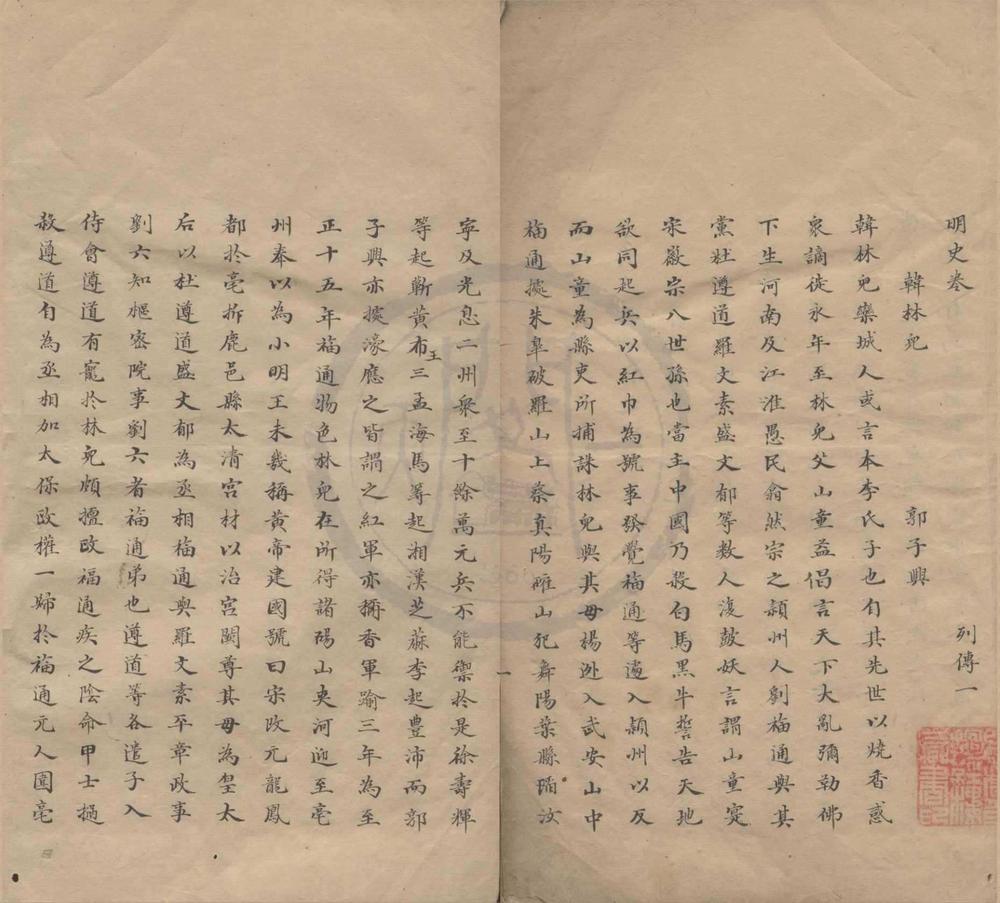 明史卷　　　　　　　　　列傳一
韓林兒　　　郭子興
韓林兒欒城人或言本李氏子也自其先世以燒香惑
衆謫徙永年至林兒父山童益倡言天下大亂彌勒佛
下生河南及江淮愚民翕然宗之潁州人劉福通與其
黨杜遵道羅文素盛文郁等数人復皷妖言謂山童寔
宋徽宗八世孫也當主中國乃殺白馬黑牛誓告天地
欲同起兵以紅巾為號事發覺福通等遽入潁州以反
而山童為縣吏所捕誅林兒與其母楊逊入武安山中
福通據朱臯破羅山上蔡真陽確山犯舞陽葉縣䧟汝
寧及光息二州衆至十餘萬元兵不能禦於是徐壽輝
等起蘄黄布王三孟海馬等起湘漢芝蔴李起豊沛而郭
子興亦據濠應之皆謂之紅軍亦稱香軍踰三年為至
正十五年福通物色林兒在所得諸碭山夾河迎至亳
州奉以為小明王未幾稱黄帝建國號曰宋改元龍鳳
都於亳拆鹿邑縣太清宫材以治宫闕尊其母為皇太
后以杜遵道盛文郁為丞相福通與羅文素平章政事
劉六知樞密院事劉六者福通弟也遵道等各遣子入
侍會遵道有寵於林兒頗擅政福通疾之陰命甲士撾
殺遵道自為丞相加太保政權一歸於福通元人聞亳
一